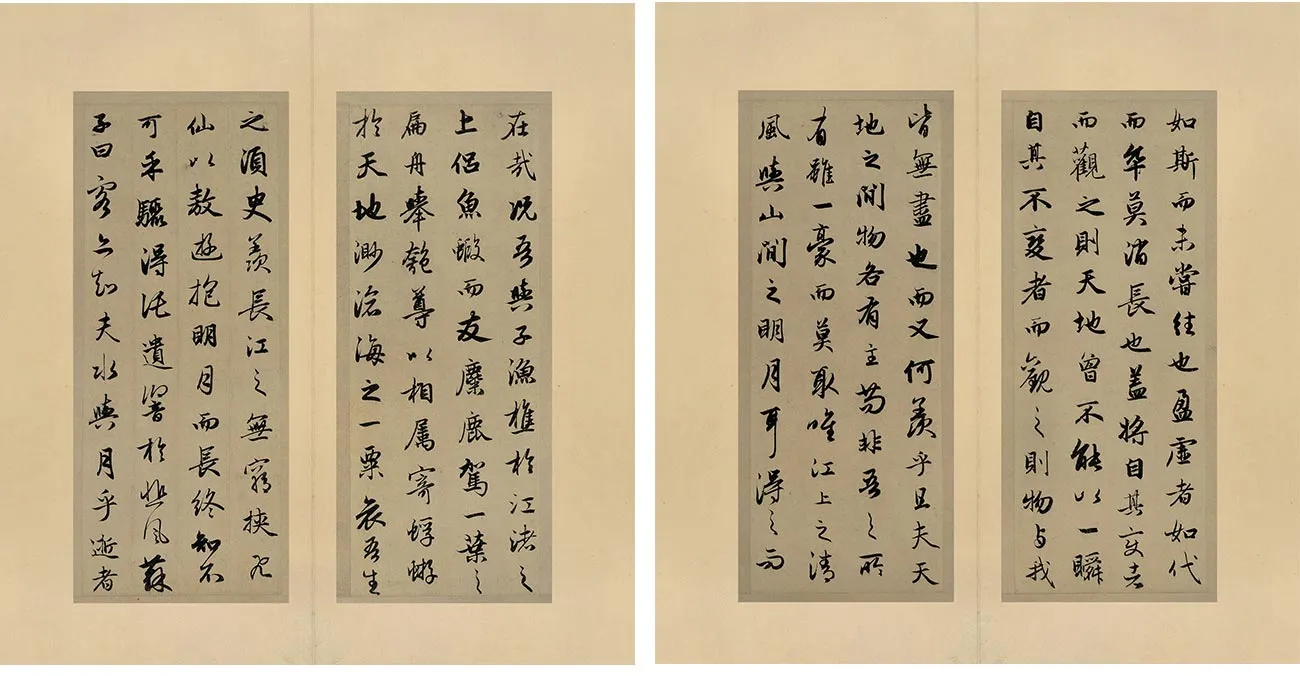 在哉况吾與子漁樵於江渚之
上侣魚蝦而友麋鹿駕一葉之
扁舟舉匏尊以相属寄蜉蝣
於天地渺滄海之一粟哀吾生
之須臾羨長江之無窮挾飛
仙以敖遊抱明月而長終知不
可乎驟得託遺響於悲風蘇
子曰客亦知夫水與月乎逝者
如斯而未嘗往也盈虛者如代
而卒莫消長也蓋將自其變者
而觀之則天地曾不能以一瞬
自其不變者而觀之則物与我
皆無盡也而又何羨乎且夫天
地之間物各有主苟非吾之所
有雖一豪而莫取唯江上之清
風與山間之明月耳得之而